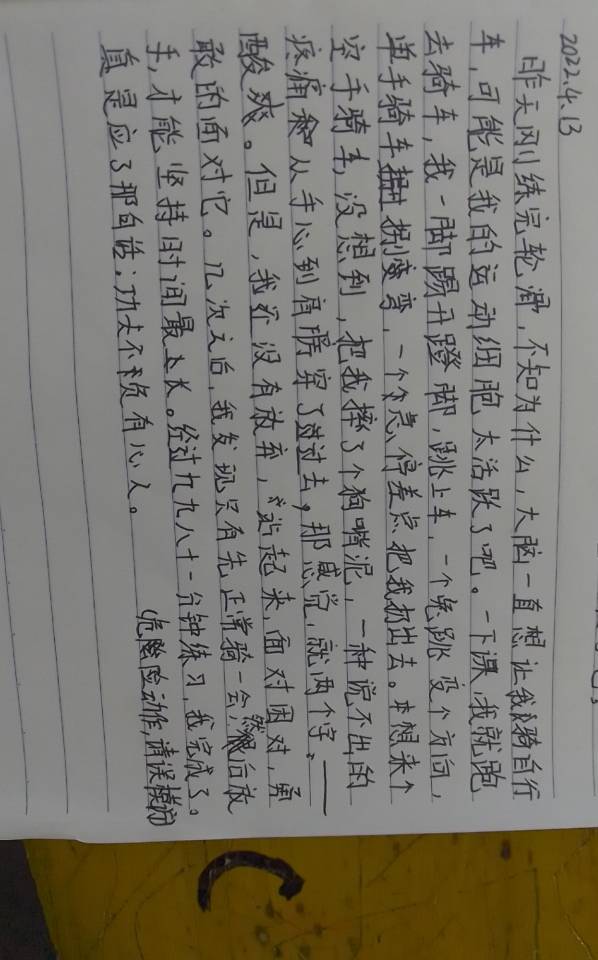 2022.4.13
昨天刚练完轮滑，不知为什么，大脑一直想让我骑自行
车，可能是我的运动细胞太活跃了吧。一下课，我就跑
去骑车，我一脚踢开蹬脚，跳上车，一个兔跳变个方向，
单手骑车拐小变弯，一个急停差点把我扔出去。本想来个
空手骑车，没想到，把我摔了个狗啃泥，一种说不出的
疼痛和从手心到肩膀穿了过去，那感觉，就两个字，——
酸爽。但是，我还没有放弃，站起来，面对困对，勇
敢的面对它。几次之后，我发现只有先正常骑一会，然后放
手，才能坚持时间最长。经过九九八十一分钟练习，我完成了。
真是应了那句话：功夫不负有心人。
（危险动作，请误模仿